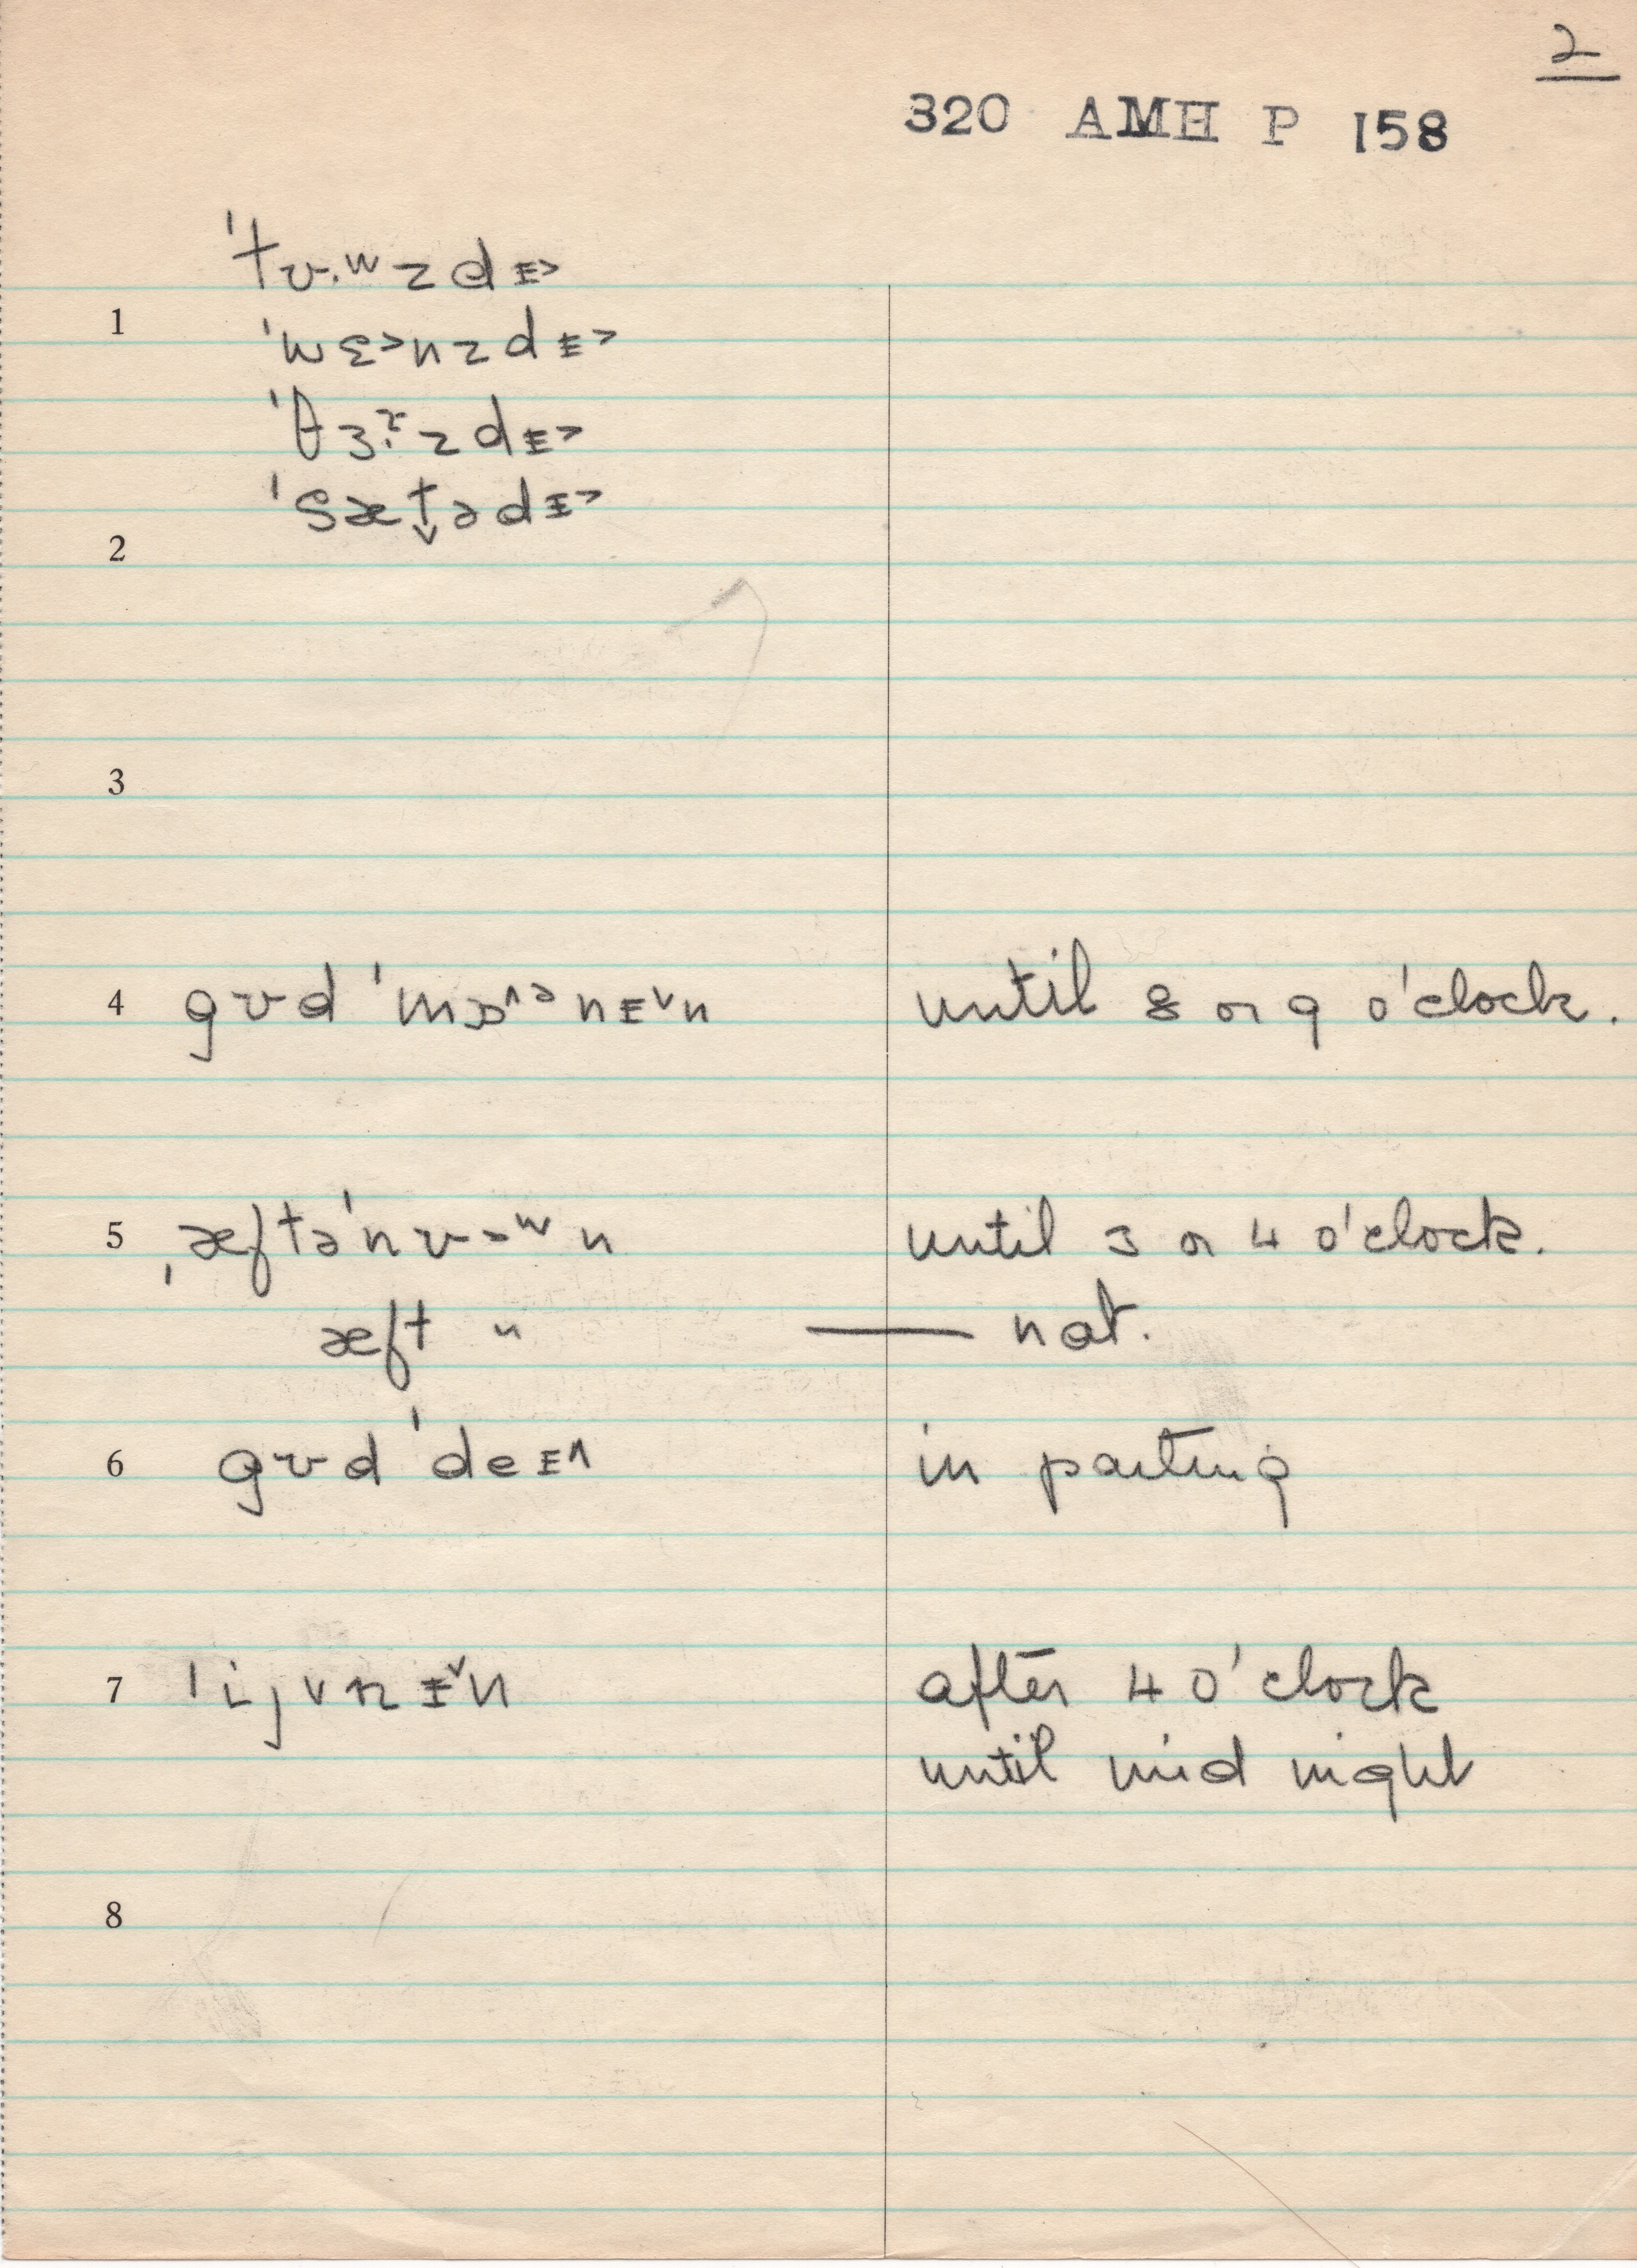 2
320 AMH P 158
ˈtʊ·ʷzdɪ˃
1
ˈwɛ˃nzdɪ˃
ˈθɜ·ɚzdɪ˃
ˈsæt̬ədɪ˃
2
3
4 gʊd ˈmɔ^ᵊnɪ˅n until 8 or 9 o'clock.
5 ˌæftəˈnʊ-ʷn until 3 or 4 o'clock.
æft " — nat.
6 gʊd ˈdeɪ^ in parting
7 ˈijvnɪ˅n after 4 o'clock
until mid night
8